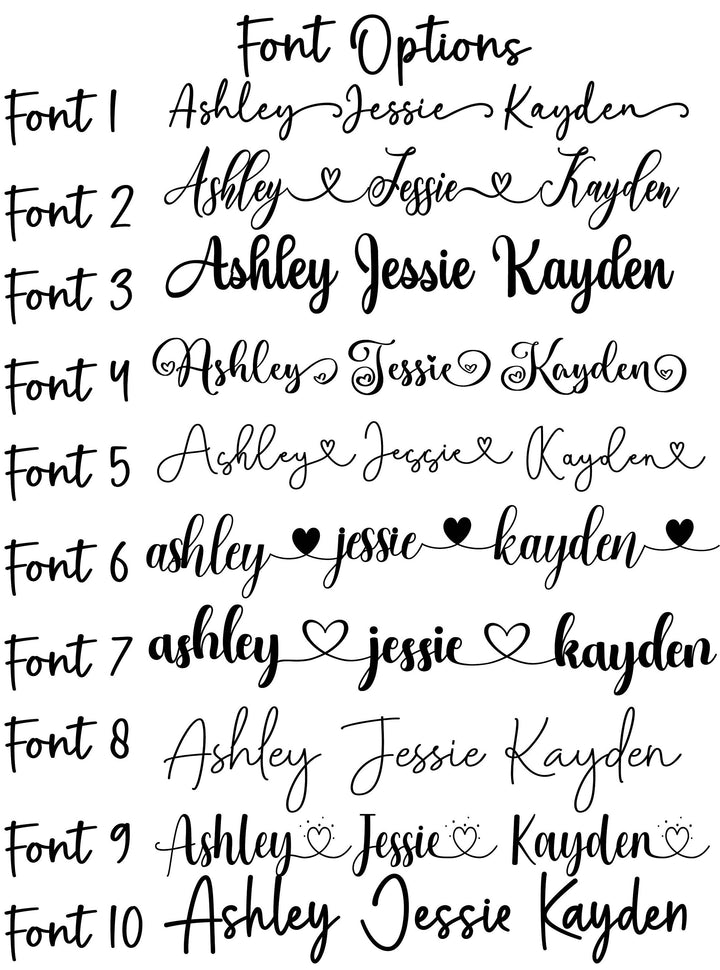 Font Options
Font 1 Ashley Jessie Kayden
Font 2 Ashley Jessie Kayden
Font 3 Ashley Jessie Kayden
Font 4 Ashley Jessie Kayden
Font 5 Ashley Jessie Kayden
Font 6 ashley jessie kayden
Font 7 ashley jessie kayden
Font 8 Ashley Jessie Kayden
Font 9 Ashley Jessie Kayden
Font 10 Ashley Jessie Kayden